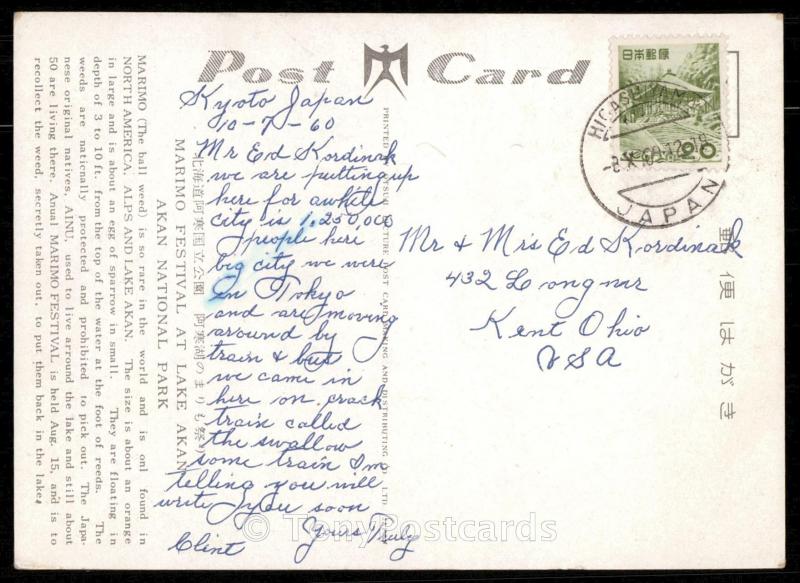 Post Card
Kyoto Japan
10-7-60
Mr Ed Kordinak
we are putting up
here for awhile
city is 1,250,000
people here
big city we were
in Tokyo
and are moving
around by
train & bus
we came in
here on crack
train called
the swallow
some train I'm
telling you will
write you soon
Yours Truly
Clint
Mr & Mrs Ed Kordinak
432 Longmr
Kent Ohio
USA
日本郵便
20
HIGASHIYAMA
JAPAN
郵便はがき
PRINTED
PICTURE POST CARD MAKING AND DISTRIBUTING CO. LTD.
北海道阿寒国立公園 阿寒湖のまりも祭り
MARIMO FESTIVAL AT LAKE AKAN
AKAN NATIONAL PARK
MARIMO (The ball weed) is so rare in the world and is onl found in
NORTH AMERICA, ALPS AND LAKE AKAN. The size is about an orange
in large and is about an egg of sparrow in small. They are floating in
depth of 3 to 10 ft. from the top of the water at the foot of reeds. The
weeds are nationally protected and prohibited to pick out. The Japa-
nese original natives, AINU, used to live arround the lake and still about
50 are living there. Anual MARIMO FESTIVAL is held Aug. 15, and is to
recollect the weed, secretly taken out, to put them back in the lake.
© TonyPostcards